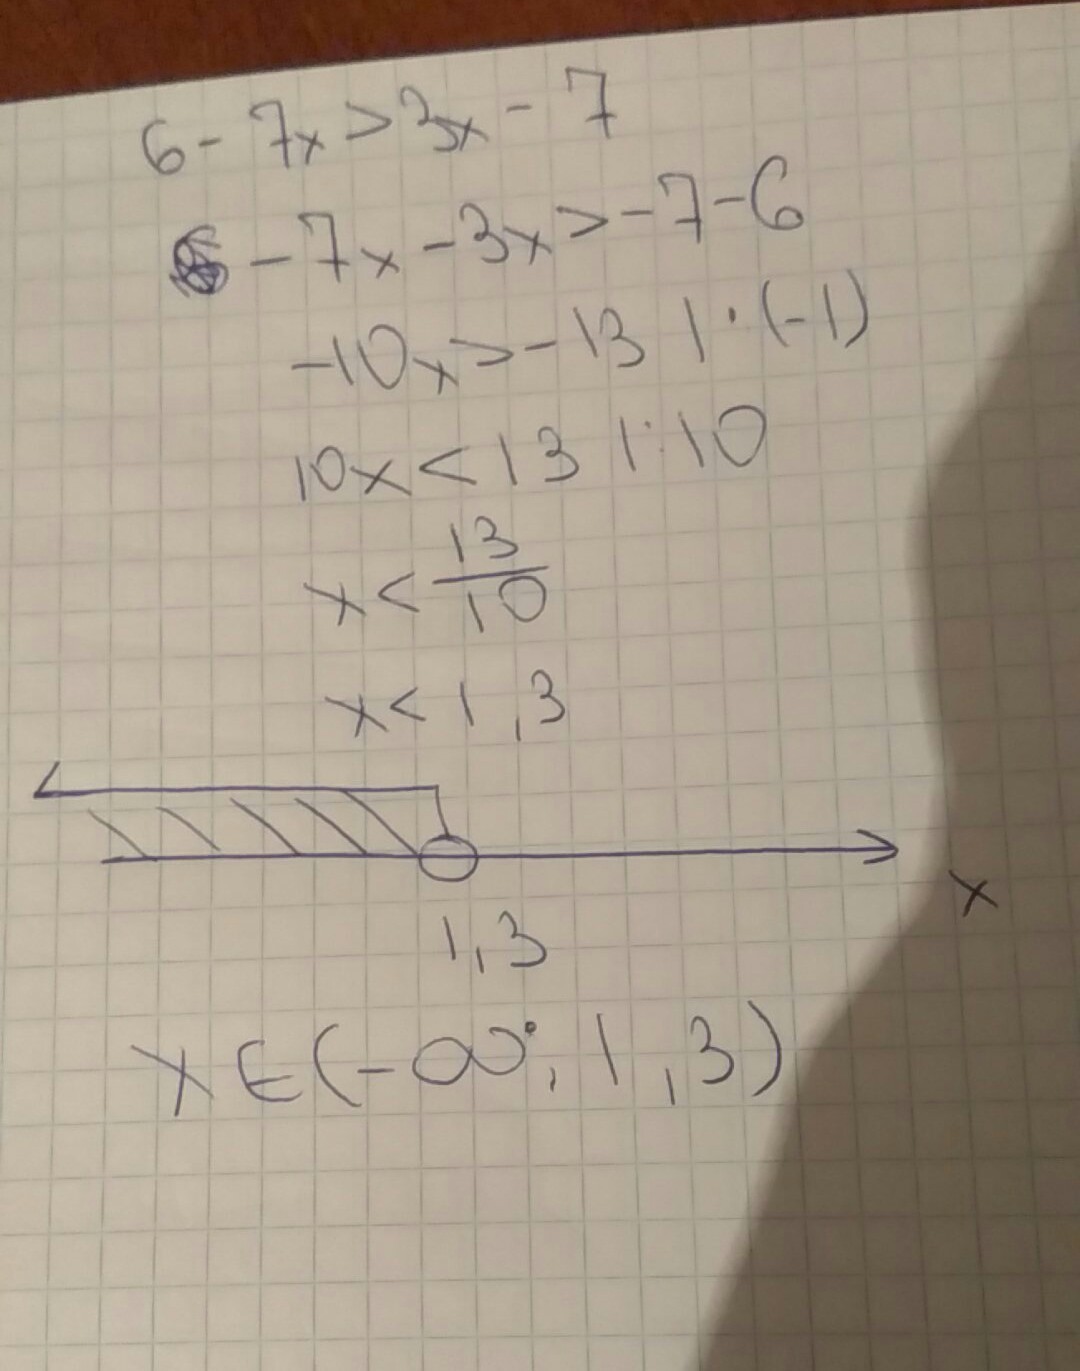 6 - 7x > 3x - 7
- 7x - 3x > - 7 - 6
-10x > - 13 | · (-1)
10x < 13 | : 10
x < 13/10
x < 1,3
x
1,3
x ∈ (-∞; 1,3)